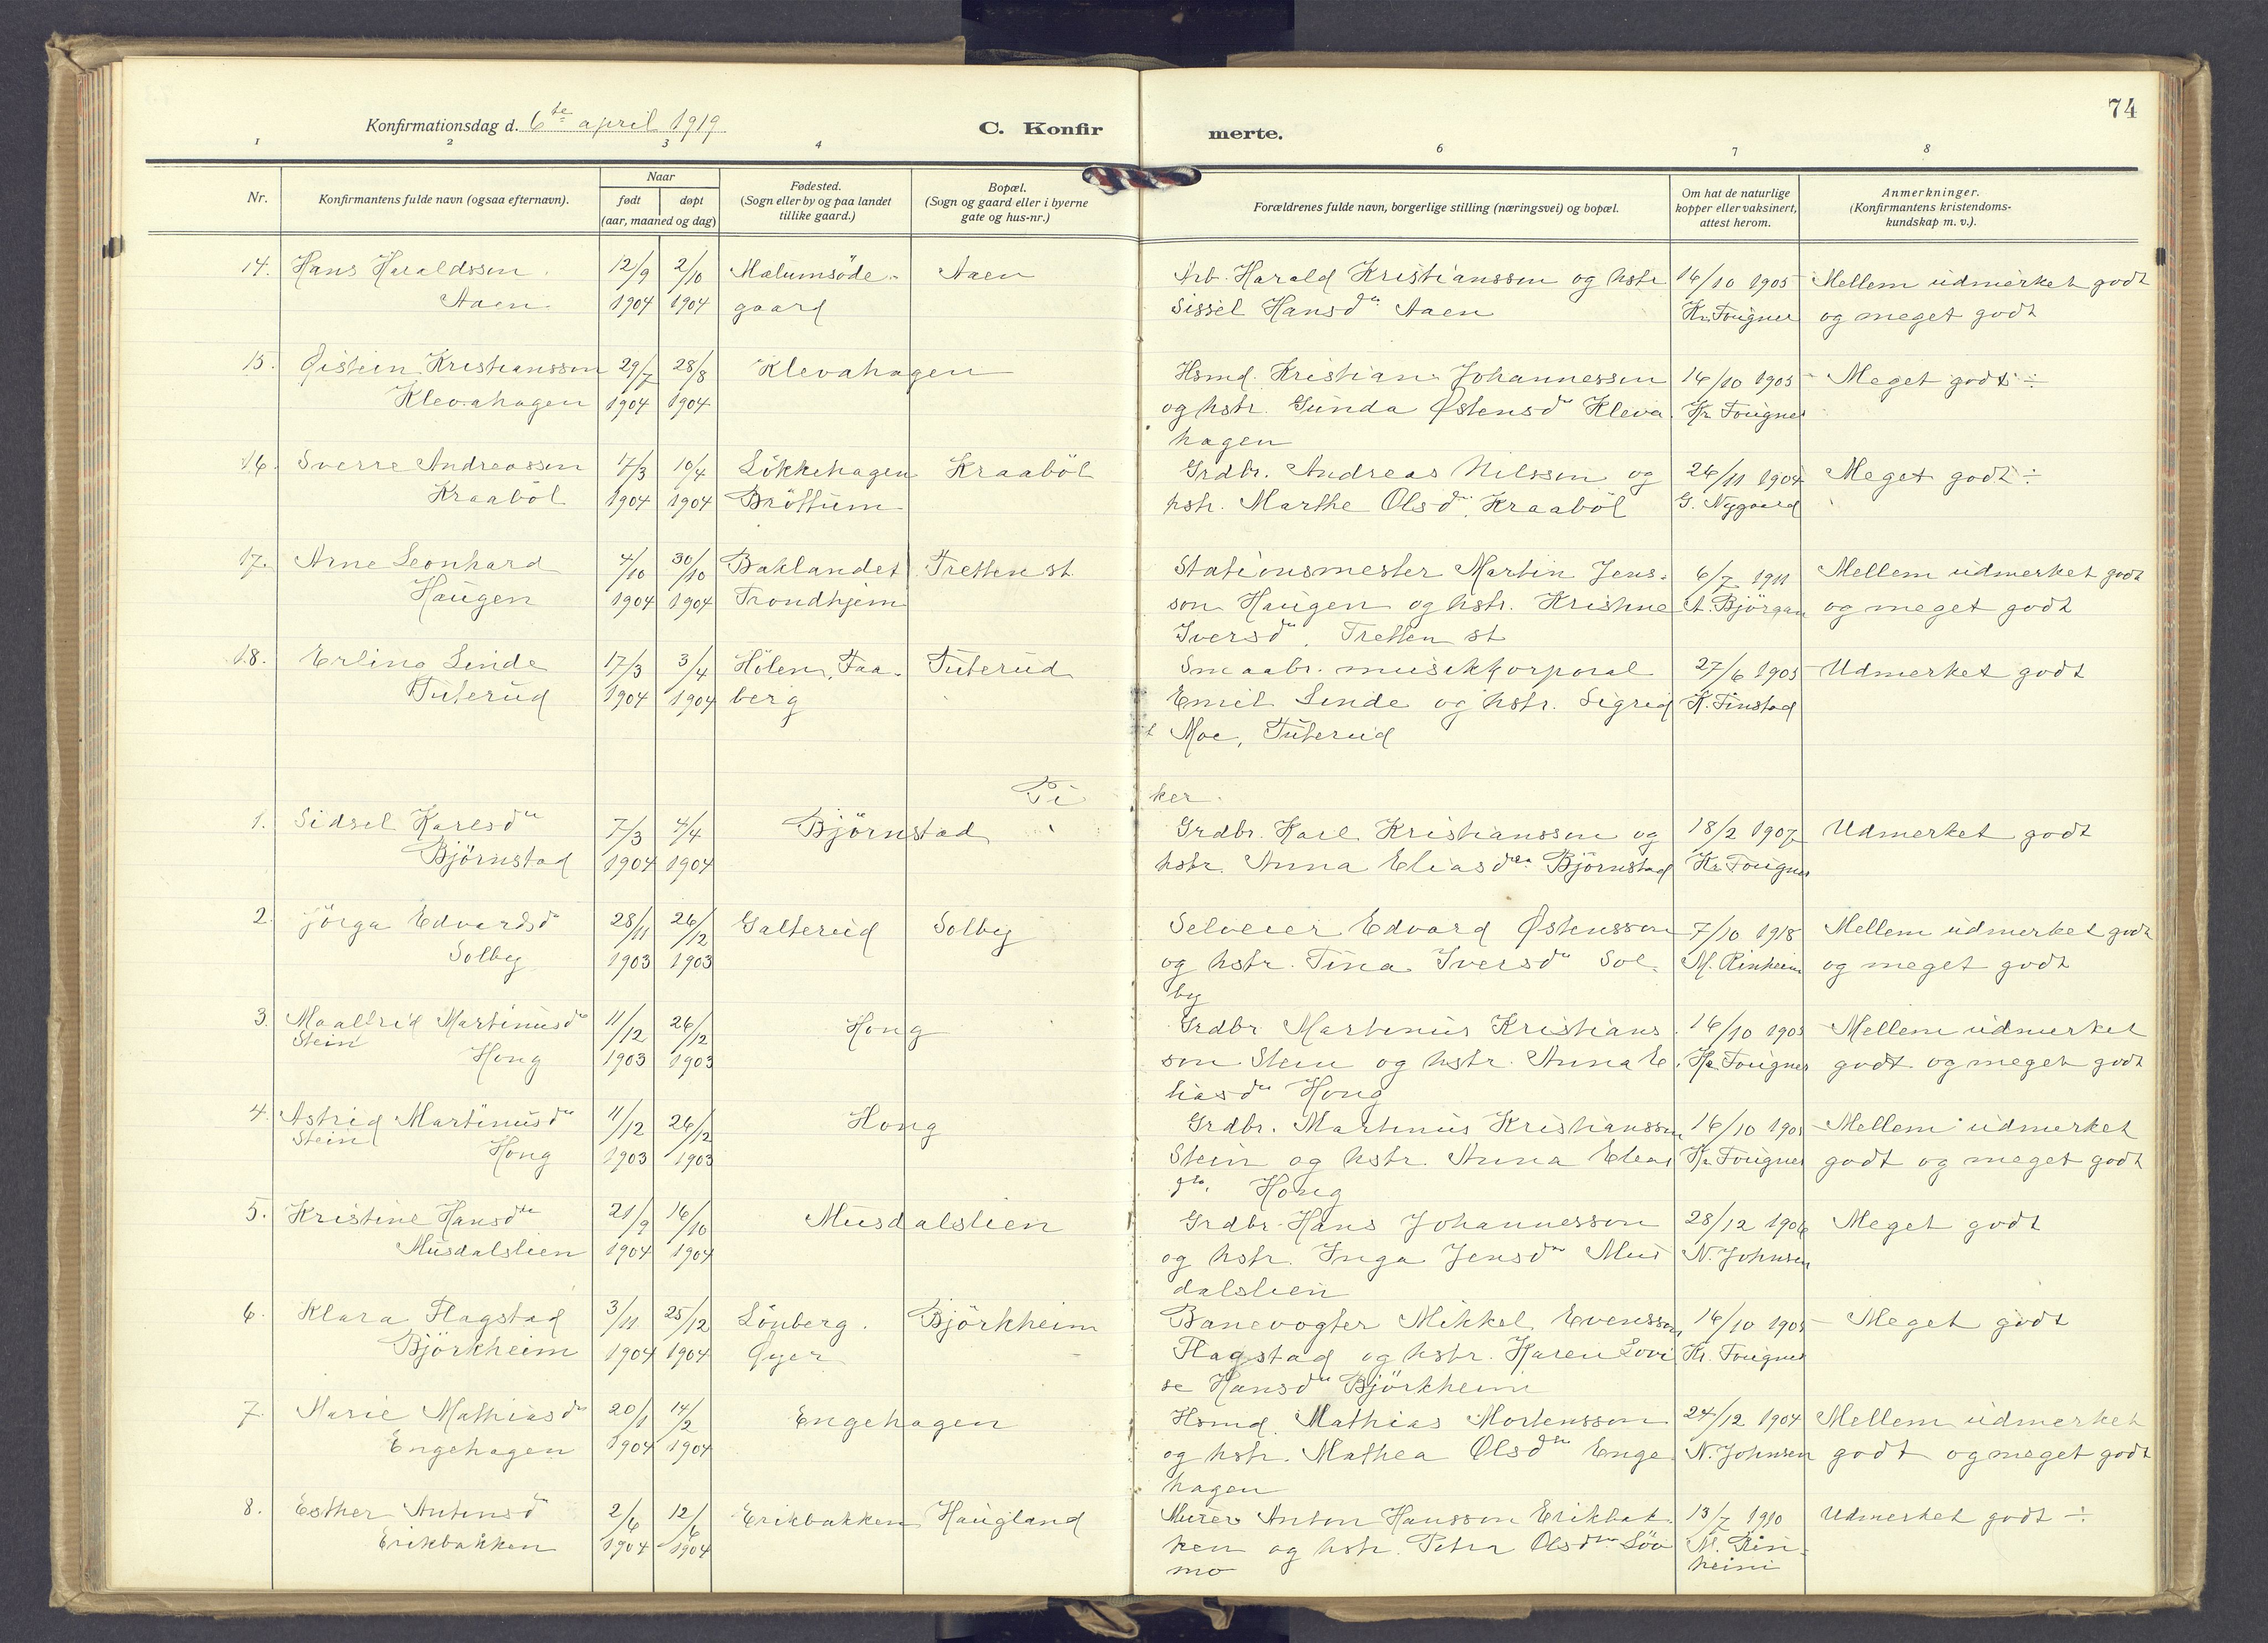 74
Konfirmationsdag d. 6te april 1919
C. Konfir merte.
1 2 3 4 6 7 8
Nr.
Konfirmantens fulde navn (ogsaa efternavn).
Naar
født døpt
(aar, maaned og dag)
Fødested.
(Sogn eller by og paa landet
tillike gaard.)
Bopæl.
(Sogn og gaard eller i byerne
gate og hus-nr.)
Forældrenes fulde navn, borgerlige stilling (næringsvei) og bopæl.
Om hat de naturlige
kopper eller vaksinert,
attest herom.
Anmerkninger.
(Konfirmantens kristendoms-
kundskap m. v.).
14. Hans Haraldssen 12/9 2/10 Mælumsöde- Aaen Arb. Harald Kristianssen og hstr 16/10 1905 Mellem udmerket godt
Aaen 1904 1904 gaard Sissel Hansdtr Aaen Kr. Fougner og meget godt
15. Øistein Kristianssen 29/7 28/8 Klevahagen Hsmd. Kristian Johannessen 16/10 1905 Meget godt ÷
Klevahagen 1904 1904 og hstr. Gunda Østensdtr Kleva Kr. Fougner
hagen
16. Sverre Andreassen 17/3 10/4 Lökkehagen Kraaböl Grdbr. Andreas Nilssen og 26/11 1904 Meget godt ÷
Kraaböl 1904 1904 Bröttum hstr. Marthe Olsdtr. Kraaböl G. Nygaard
17. Arne Leonhard 4/10 30/10 Baklandet Tretten st. Stationsmester Martin Jens- 6/7 1911 Mellem udmerket godt
Haugen 1904 1904 Trondhjem son Haugen og hstr. Kristine A. Björgan og meget godt
Iversdtr, Tretten st
18. Erling Linde 17/3 3/4 Hölen, Faa- Tuterud Smaabr. musikkorporal 27/6 1905 Udmerket godt
Tuterud 1904 1904 berg Emil Linde og hstr. Sigrid K. Finstad
Moe, Tuterud
Pi ker.
1. Sidsel Karlsdtr 7/3 4/4 Björnstad Grdbr. Karl Kristianssen og 18/2 1907 Udmerket godt
Björnstad 1904 1904 hstr. Anna Eliasdtr Björnstad Kr. Fougner
2. Jörga Edvardsdtr 28/11 26/12 Galterud Solby Selveier Edvard Østensson 7/10 1918 Mellem udmerket godt
Solby 1903 1903 og hstr. Tina Iversdtr Sol- M. Rinheim og meget godt
by
3. Maalfrid Martinusdtr 11/12 26/12 Hong Grdbr Martinus Kristians 16/10 1905 Mellem udmerket
Stein Hong 1903 1903 son Stein og hstr. Anna E Kr. Fougner godt og meget godt
liasdtr Hong
4. Astrid Martinusdtr 11/12 26/12 Hong Grdbr. Martinus Kristianssen 16/10 1905 Mellem udmerket
Stein Hong 1903 1903 Stein og hstr. Anna Elias Kr. Fougner godt og meget godt
dtr. Hong
5. Kristine Hansdtr 21/9 16/10 Musdalslien Grdbr. Hans Johannesson 28/12 1906 Meget godt
Musdalslien 1904 1904 og hstr. Inga Jensdtr Mus N. Johnsen
dalslien
6. Klara Flagstad 3/11 25/12 Lönberg. Björkheim Banevogter Mikkel Evensson 16/10 1905 Meget godt
Björkheim 1904 1904 Øyer Flagstad og hstr. Karen Lovi Kr. Fougner
se Hansdtr Björkheim
7. Marie Mathiasdtr 20/1 14/2 Engehagen Hsmd. Mathias Mortensson 24/12 1904 Mellem udmerket
Engehagen 1904 1904 og hstr. Mathea Olsdtr Enge N. Johnsen godt og meget godt
hagen
8. Esther Antonsdtr 2/6 12/6 Erikbakken Haugland Murer Anton Hansson Erikbak- 13/7 1910 Udmerket godt ÷
Erikbakken 1904 1904 ken og hstr. Petra Olsdtr Löv M. Rin-
mo heim